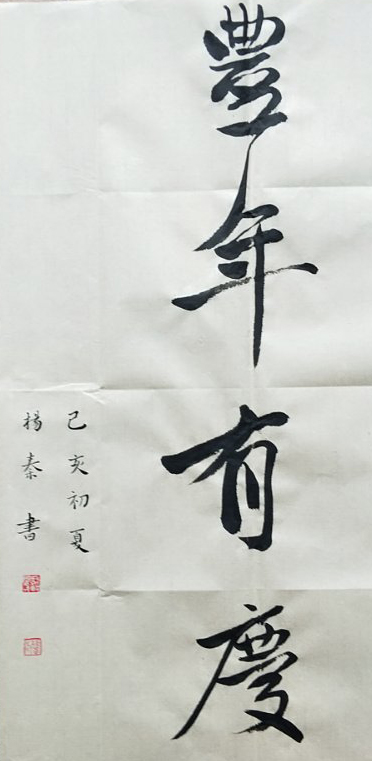 豐年有慶
己亥初夏
楊秦書